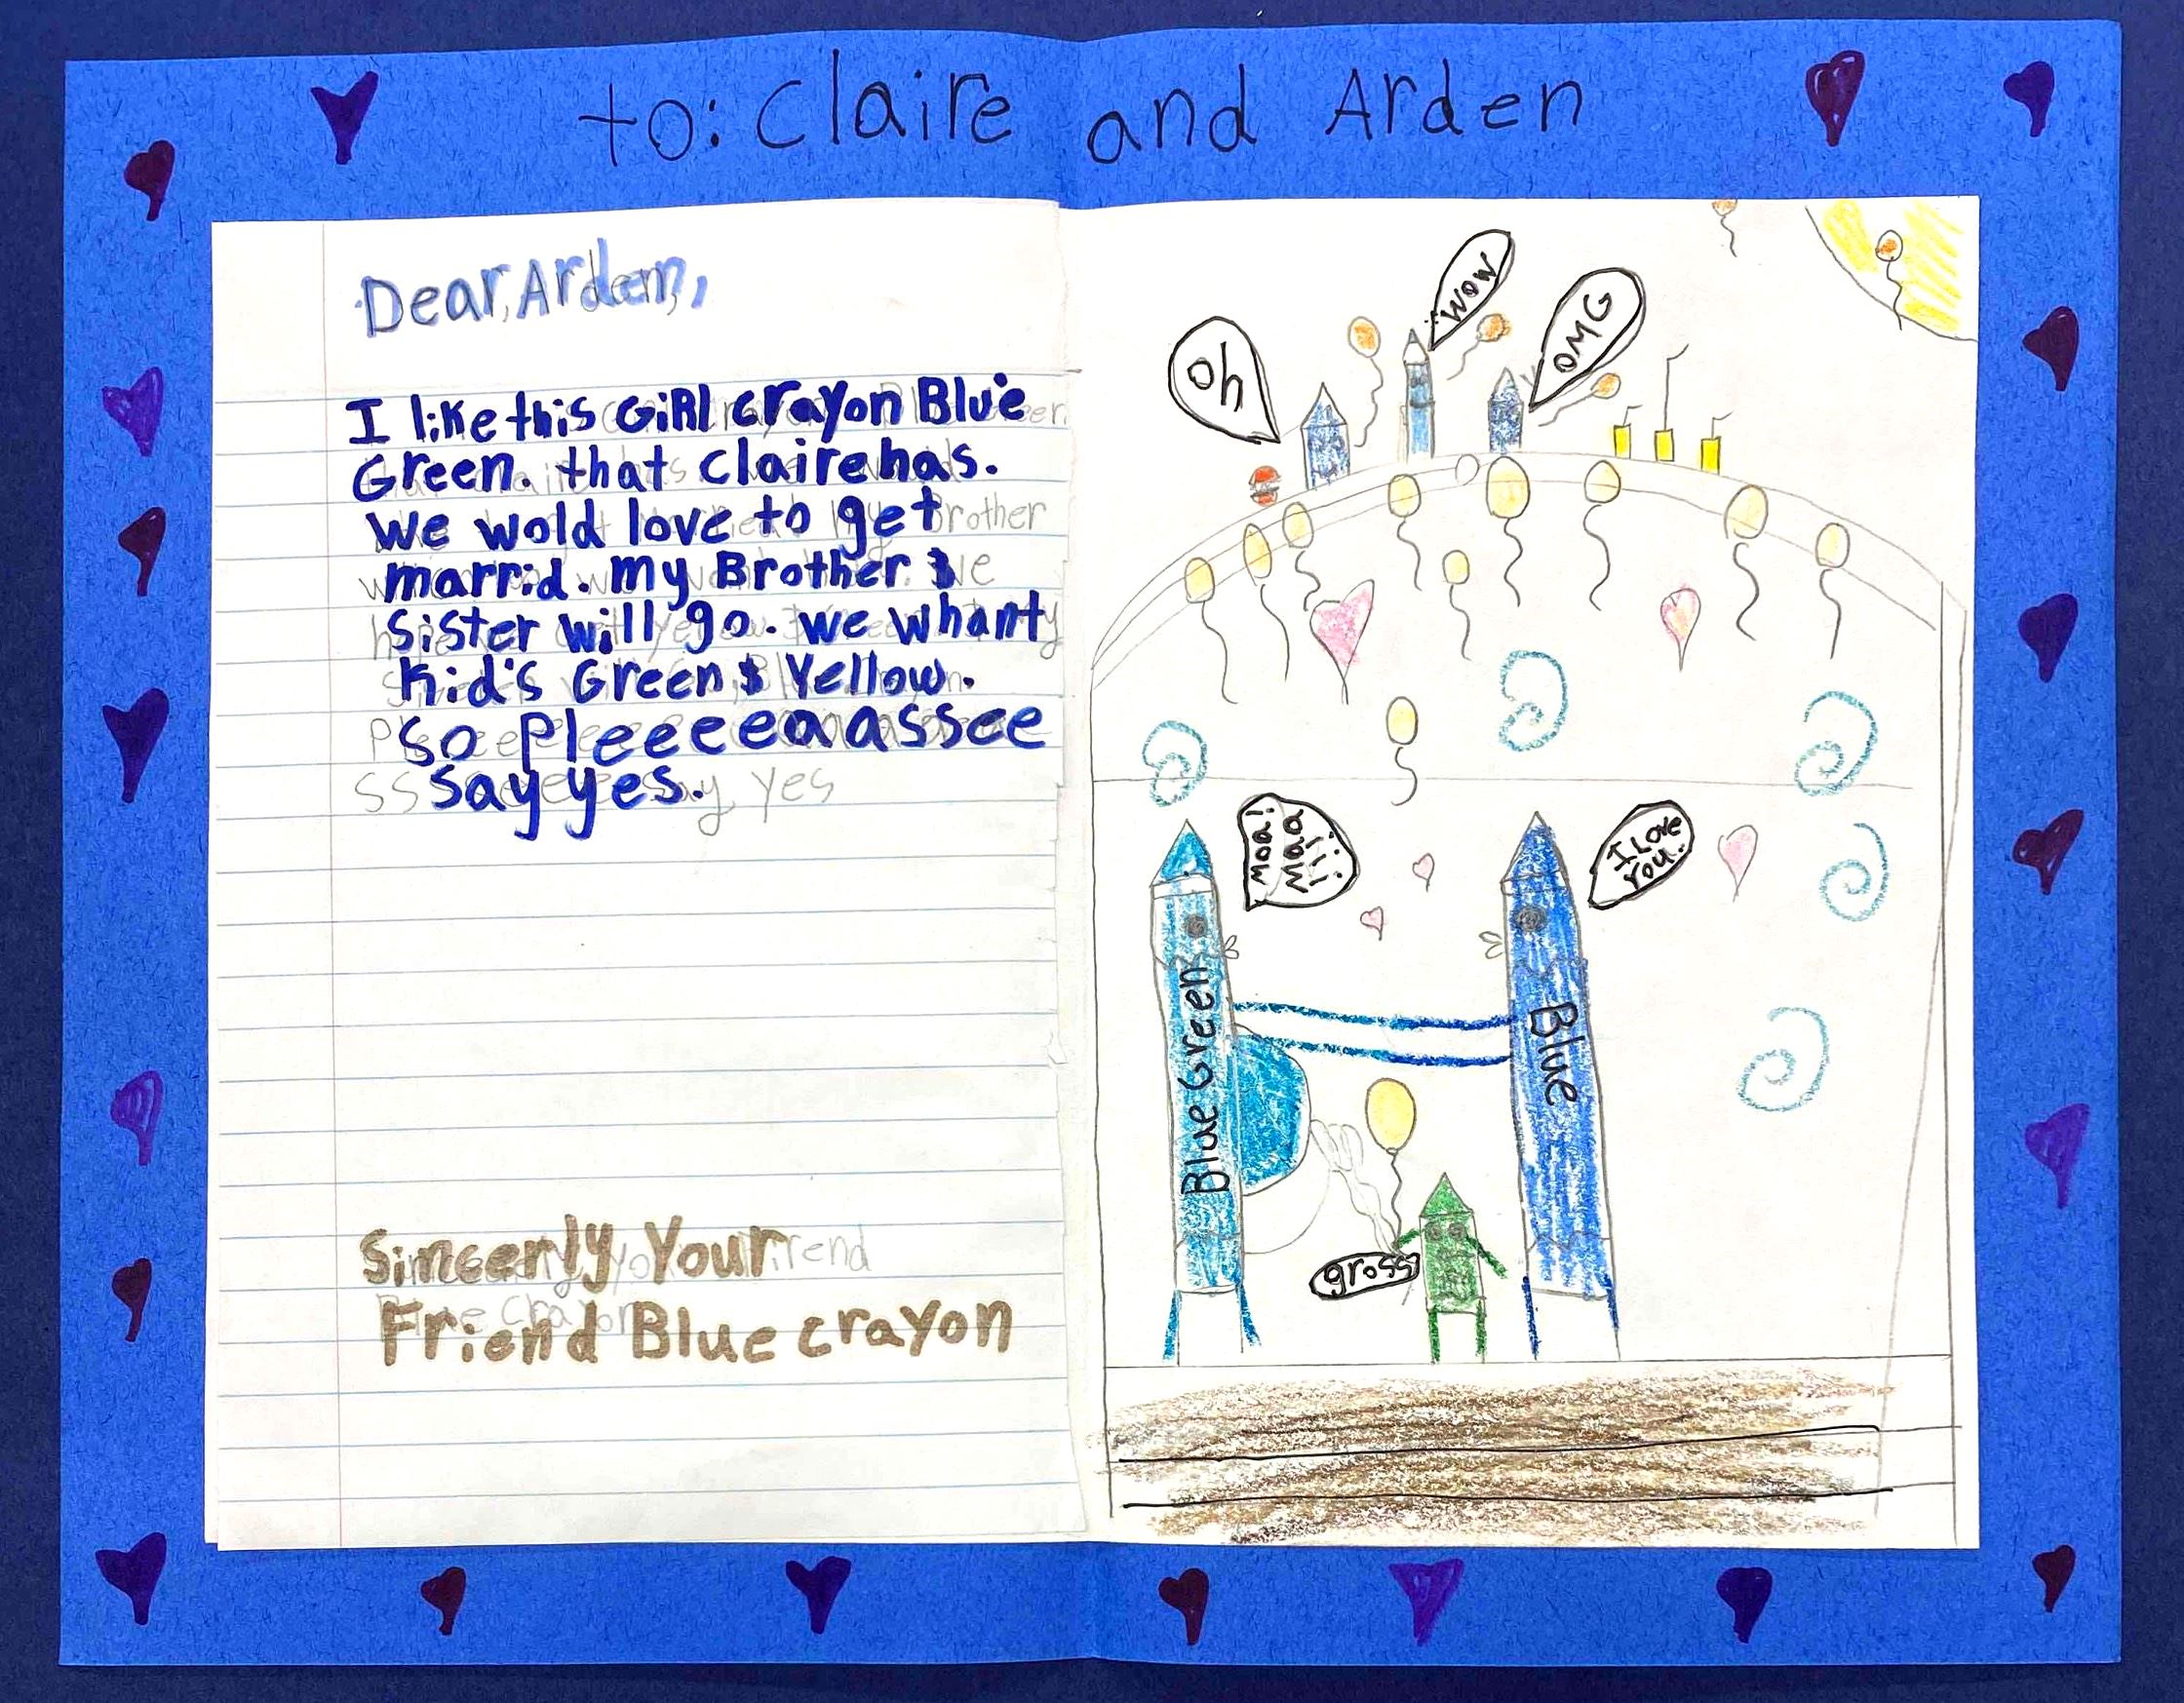 to: Claire and Arden
Dear, Arden,
I like this GiRl crayon Blue
Green. that Claire has.
we wold love to get
marrid. my Brother $
sister will go. we whant
Kid's Green $ Yellow.
so Pleeeeaassee
say yes.
Sincerly Your
Friend Blue crayon
oh
wow
OMG
Moa!
Maa
!!!
I Love
You.
Blue Green
Blue
gross